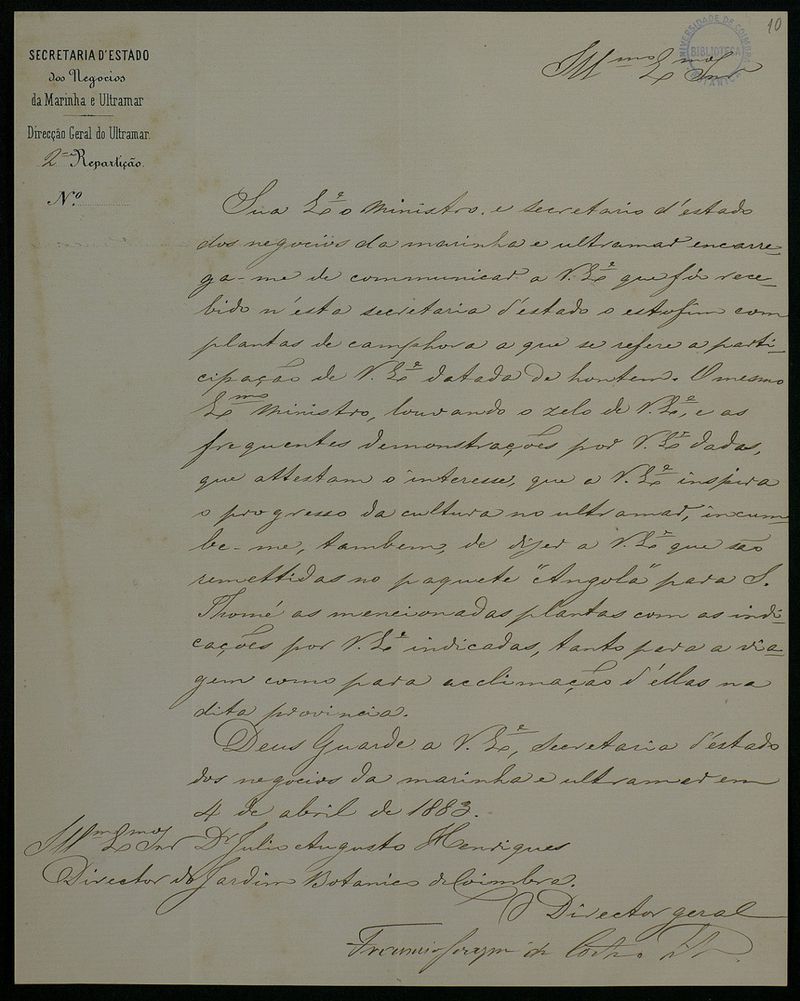 10
UNIVERSIDADE DE COIMBRA
BIBLIOTECA
BOTANICA
SECRETARIA D'ESTADO
dos Negocios
da Marinha e Ultramar
Direcção Geral do Ultramar.
2ª Repartição.
N.º
Illmo Exmo Snr
Sua Exª o ministro, e secretario d'estado
dos negocios da marinha e ultramar encarre-
ga-me de communicar a V. Exª que foi rece-
bido n'esta secretaria d'estado o estofim com
plantas de camphora a que se refere a parti-
cipação de V. Exª datada de hontem. O mesmo
Exmo ministro, louvando o zelo de V. Exª, e as
frequentes demonstrações por V. Exª dadas,
que attestam o interesse, que a V. Exª inspira
o progresso da cultura no ultramar, incum-
be-me, tambem, de dizer a V. Exª que são
remettidas no paquete "Angola" para S.
Thomé as mencionadas plantas com as indi-
cações por V. Exª indicadas, tanto para a via-
gem como para acclimação d'ellas na
dita provincia.
Deus Guarde a V. Exª, Secretaria d'estado
dos negocios da marinha e ultramar em
4 de abril de 1883.
Illmo Exmo Snr Dr Julio Augusto Henriques
Director do Jardim Botanico de Coimbra.
O Director geral
Francisco Joaquim da Costa e Sª